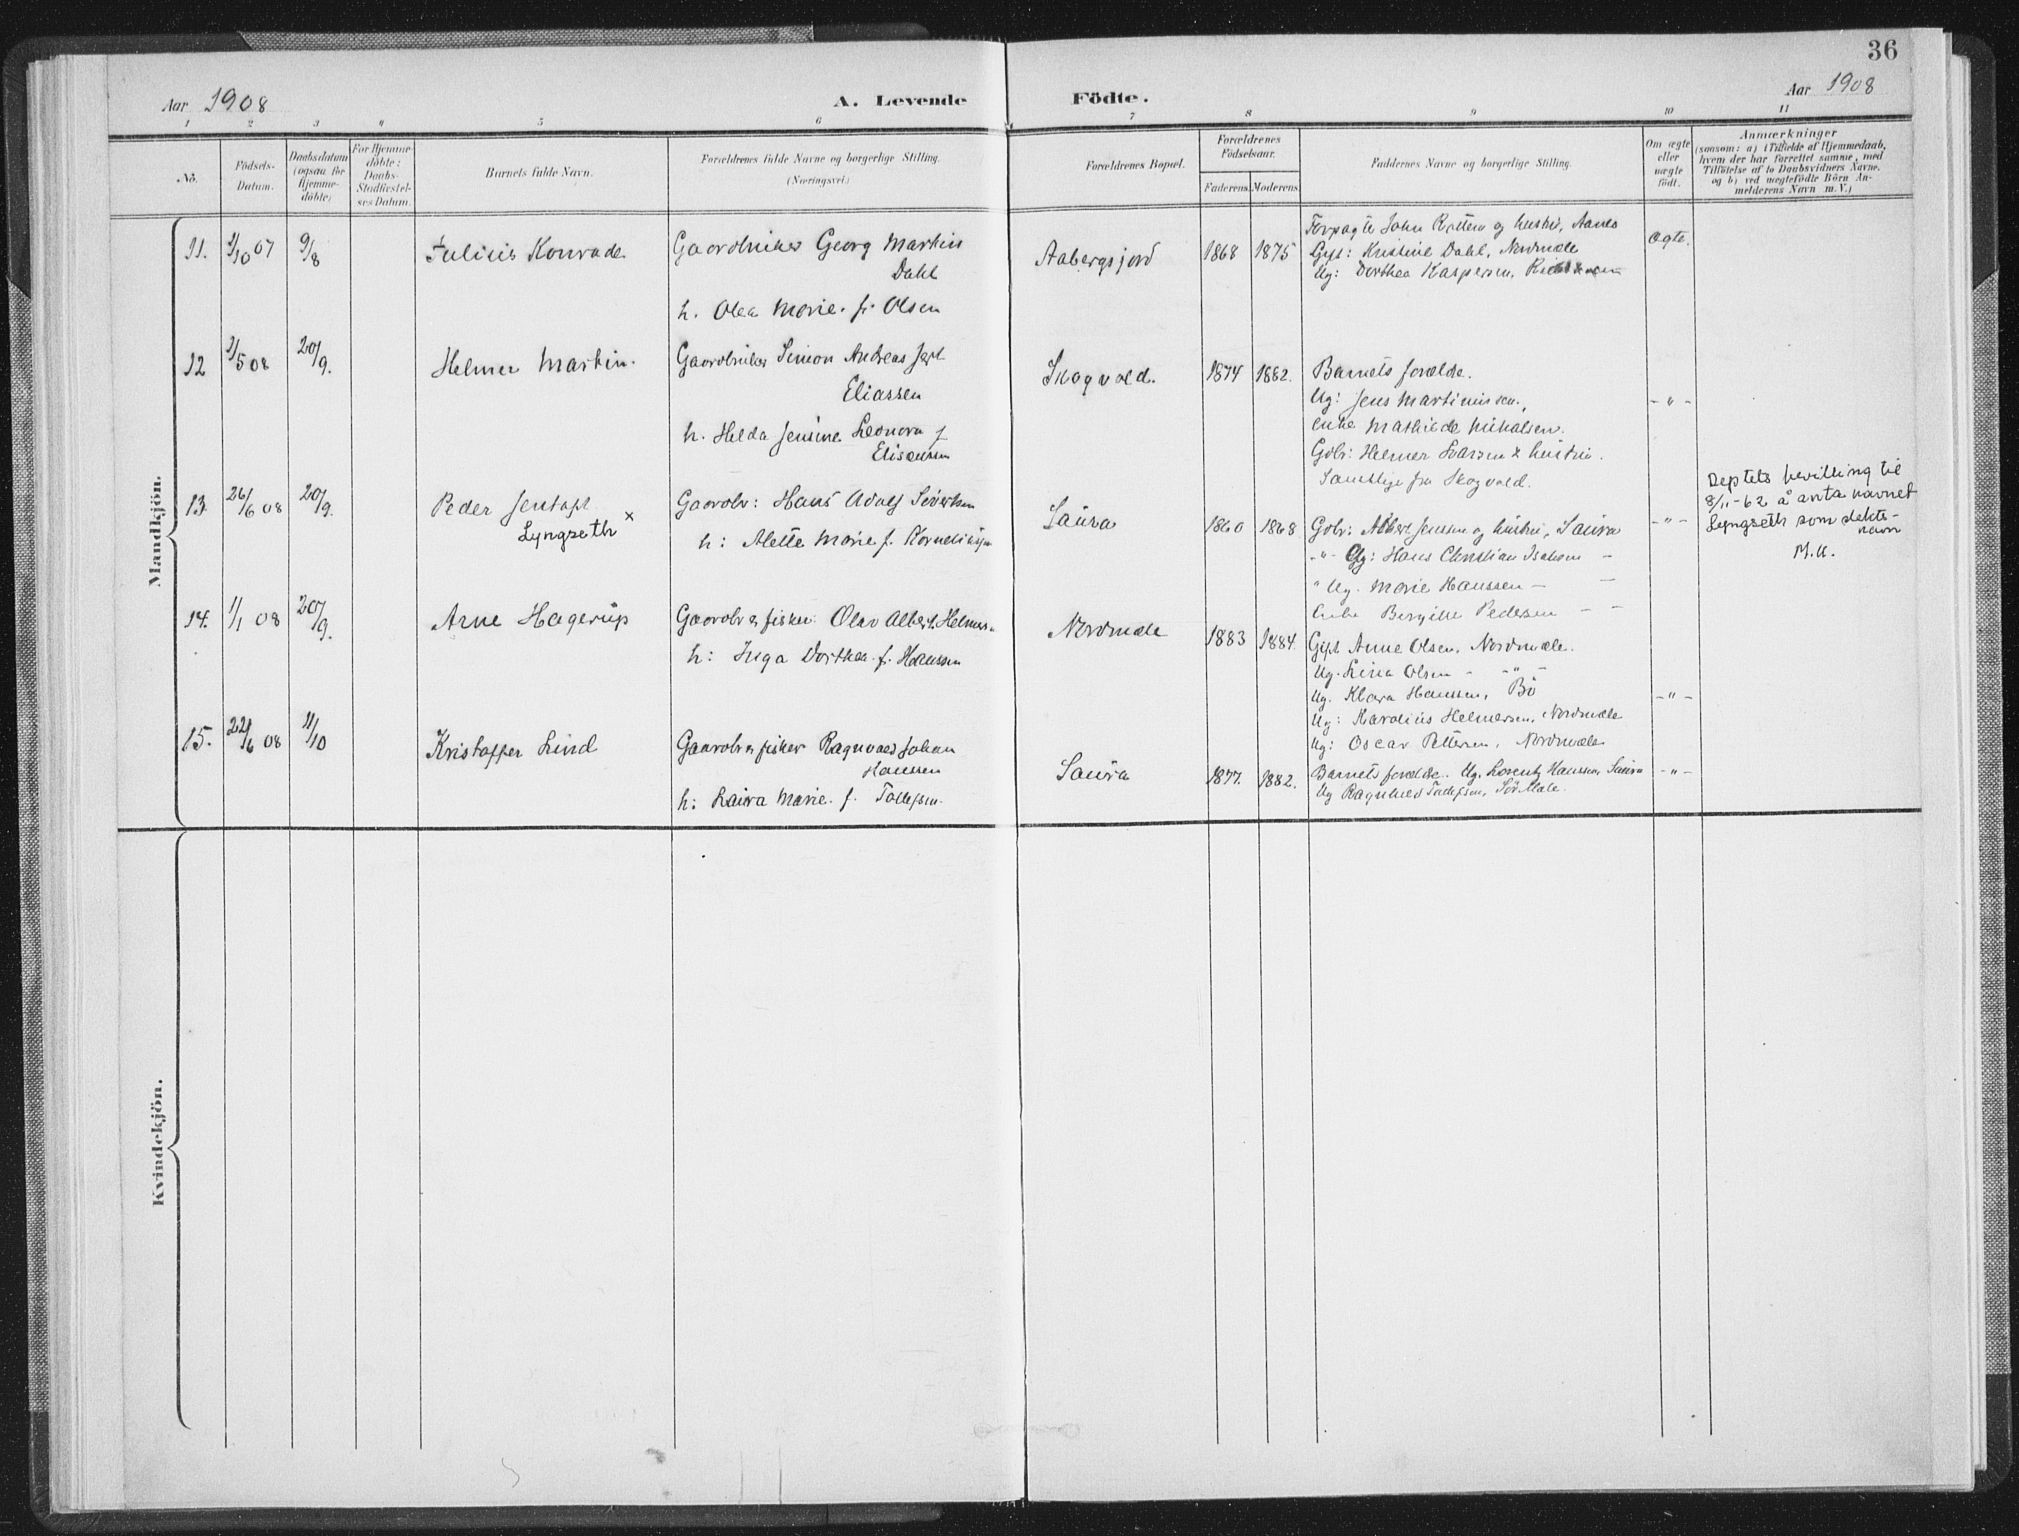 36
Aar 1908
A. Levende
Födte.
Aar 1908
1 2 3 4 5 6 7 8 9 10 11
No.
Födsels-
Datum.
Daabsdatum
(ogsaa for
Hjemme-
döbte)
For Hjemme-
döbte:
Daabs-
Stadfæstel-
ses Datum.
Barnets fulde Navn.
Forældrenes fulde Navne og borgerlige Stilling.
(Næringsvei.)
Forældrenes Bopæl.
Forældrenes
Födselsaar.
Faderens
Moderens
Faddernes Navne og borgerlige Stilling.
Om ægte
eller
uægte
född.
Anmærkninger
(saasom: a) i Tilfælde af Hjemmedaab,
hvem der har forrettet samme, med
Tilföielse af to Daabsvidners Navne,
og b) ved uægteföd­te Börn An-
melderens Navn m. V.)
Mandkjön.
11. 1/10 07 9/8
Julius Konrade
Gaardbruker Georg Martin
Dahl
h. Olea Marie f. Olsen
Aabergsjord
1868 1875
Forpagter John Rotten og hustru, Aanes
Gift: Kristine Dahl, Nordmele
Ug: Dorthea Kaspersen,
Ægte.
12 1/5 08 20/9.
Helmer Martin.
Gaardbruker Simon Andreas
Eliassen
h. Helda Jensine Leonora f
Eliseusen
Skogvold.
1874 1882.
Barnets forældre.
Ug: Jens Martinussen,
enke Mathilde Mikalsen.
Gdbr: Helmer Larsen & hustru.
Samtlige fra Skogvold.
- " -
13. 26/6 08 20/9.
Peder Jentoft
Lyngseth x
Gaardbr: Hans Adolf Sivertsen
h: Alette Marie f. Korneliusen
Saura
1860 1868
Gdbr: Albert Jensen og hustru, Saura
- " - Ug: Hans Christian Isaksen -
" Ug. Marie Hanssen - -
Enke Bergitte Pedersen - -
- " -
Deptets bevilling til
8/11-62 å anta navnet
Lyngseth som slekts-
navn
M.U.
14. 1/1 08 20/9.
Arne Hagerup
Gaardbr & fisker Olav Albert Helmers.
h: Inga Dorthea f. Hanssen
Nordmele
1883 1884.
Gift Anne Olsen, Nordmele.
Ug. Lina Olsen - - " -
Ug. Klara Hanssen, Bö
Ug: Karolius Helmersen, Nordmele
Ug: Oscar Pettersen, Nordmele
- " -
15. 22/6 08 11/10
Kristoffer Lind
Gaardbr & fisker Ragnvald Johan
Hanssen
h: Laura Marie f. Tollefsen.
Saura
1877. 1882.
Barnets forældre. Ug. Lorentz Hanssen, Saura
Ug Ragnhild Tollefsen, Sör Mele.
- " -
Kvindekjön.